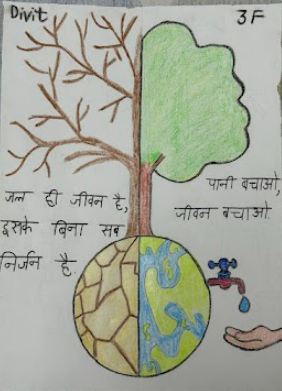 Divit
3F
जल ही जीवन है,
इसके बिना सब
निर्जन है.
पानी बचाओ,
जीवन बचाओ.